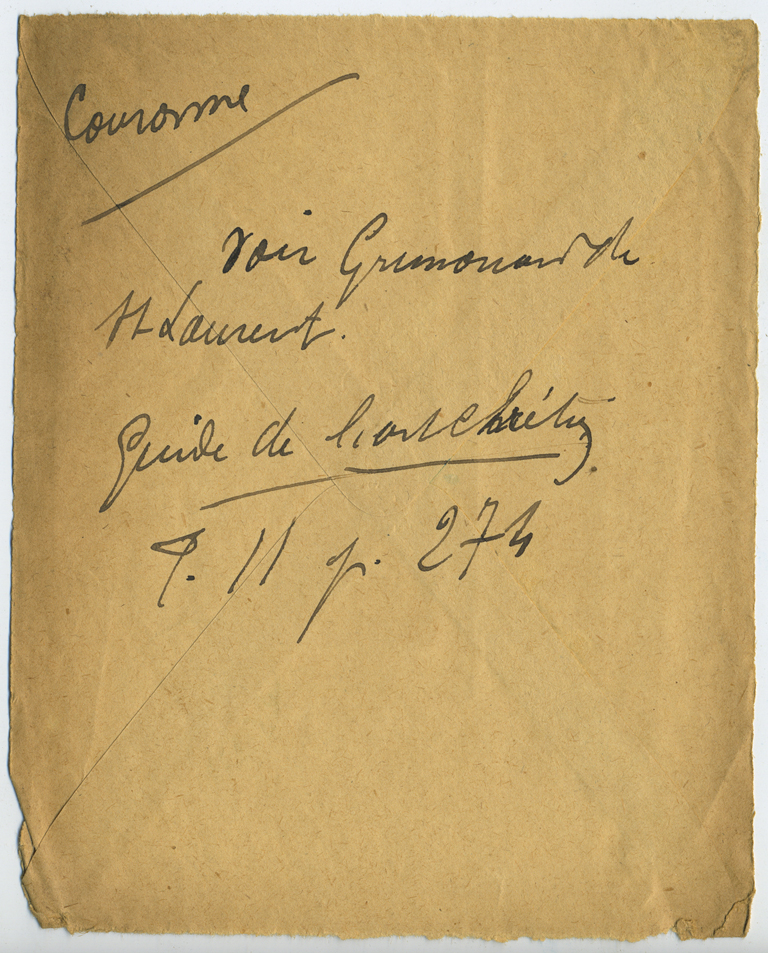 Couronne
Voir Grimouard de
St Laurent.
Guide de l'art chrétien.
T. II p. 274